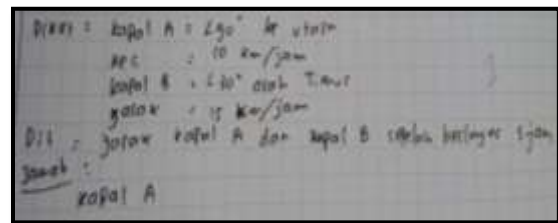 Diket : kapal A = ∠90° ke utara
kec : 10 km/jam
kapal B = ∠30° arah Timur
: 15 km/jam
Dit : jarak kapal A dan kapal B setelah berlayar jam
Jawab :
kapal A